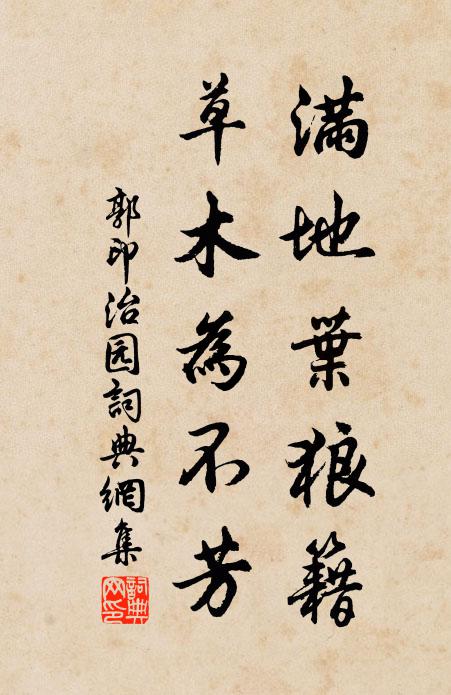 滿地葉狼籍
草木為不芳
郭印治园詞典網集
詞典
网印